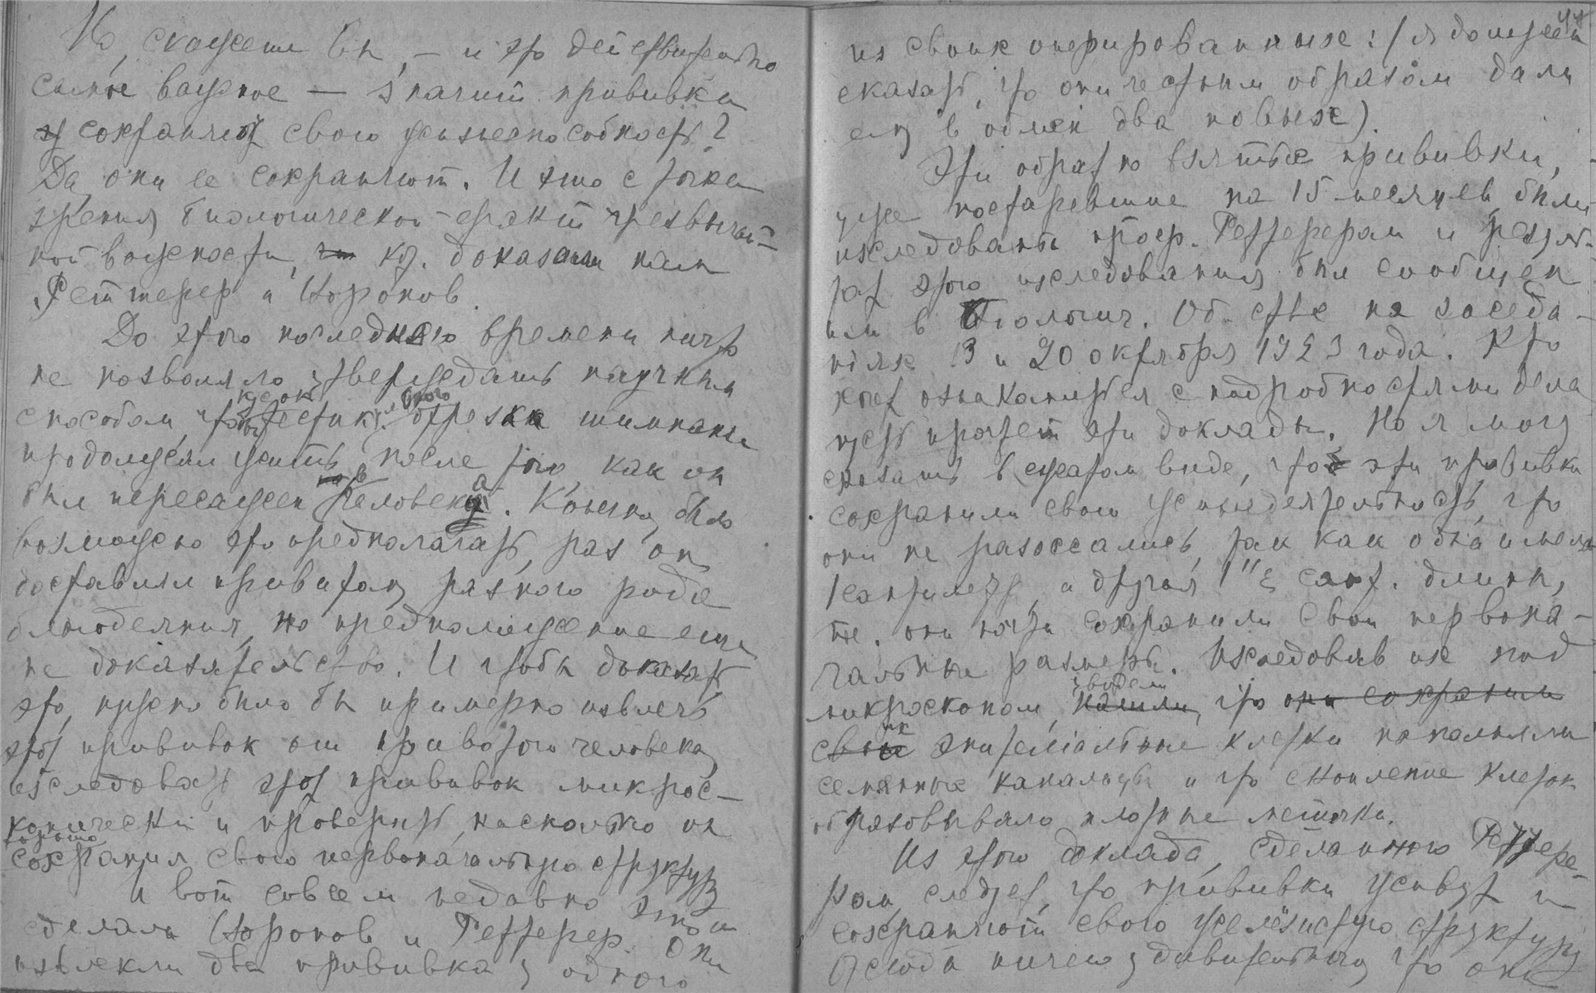 Но, скажете Вы, — и это действительно
самое важное — значит прививки
сохраняют свою жизнеспособность?
Да они ее сохраняют. И это с точки
зрения биологической-факт чрезвычай-
ной важности, кот. доказали нам
Реттерер и Воронов.
До этого последнего времени ничто
не позволяло утверждать научным
способом, что отрезки шимпанзе
продолжали жить после того, как он
был пересажен человеку. Конечно, было
возможно это предполагать, раз он
доставлял привитому разного рода
благодеяния, но предположение еще
не доказательство. И чтобы доказать
это, нужно было бы примерно извлечь
этот прививок от привитого человека,
исследовать этот прививок микрос-
копически и проверить насколько он
сохранил свою первоначальную структуру
И вот совсем недавно это и
сделали Воронов и Реттерер. Они
извлекли два прививка у одного
из своих оперированных: (я должен
сказать, что они честным образом дали
ему в обмен два новых).
Эти обратно взятые прививки,
уже постаревшие на 15 месяцев были
исследованы проф. Реттерером и резуль-
тат этого исследования был сообщен
им в Биологич. Об-стве на заседа-
ниях 13 и 20 октября 1923 года. Кто
хочет ознакомиться с подробностями дела
пусть прочтет эти доклады. Но я могу
сказать в сжатом виде, что эти прививки
сохранили свою жизнедеятельность, что
они не рассосались, так как одна имела
1 сантиметр, а другая 1 1/2 сант. длины,
т.е. они почти сохранили свои первона-
чальные размеры. Исследовав их под
микроскопом, увидели нашли, что они сохранили
свои их эпителиальные клетки наполняли
семянные канальцы и что скопление клеток
образовывало плотные мешочки.
Из этого доклада, сделанного Реттере-
ром, следует, что прививки живут и
сохраняют свою железистую структуру
Отсюда ничего удивительного, что они